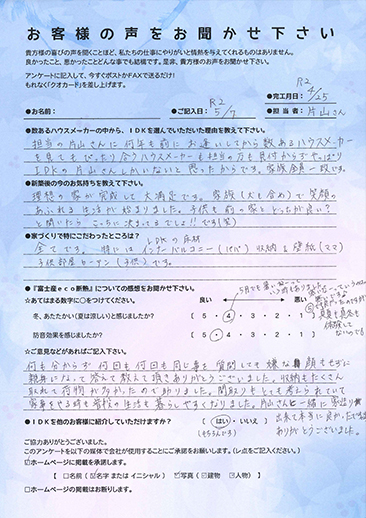 お客様の声をお聞かせ下さい
貴方様の喜びの声を聞くことほど、私たちの仕事にやりがいと情熱を与えてくれるものはありません。
良かったこと、悪かったことどんな事でも結構です。是非、貴方様の声をお聞かせ下さい。
アンケートに記入して、今すぐポストかFAXで送るだけ!
もれなく「クオカード」を差し上げます。
●完工月日: R2 2/25
●お名前:
●ご記入日: R2 5/7
●担当者: 片山さん
●数あるハウスメーカーの中から、IDKを選んでいただいた理由を教えて下さい。
担当の片山さんに何年も前にお逢いしてから数あるハウスメーカー
を見てもぴったり合うハウスメーカーも担当の方も見付からずやっぱり
IDKの片山さんしかいないと思ったからです。家族全員一致です。
●新築後の今のお気持ちを教えて下さい。
理想の家が完成して大満足です。家族(犬も含め)で笑顔の
あふれる生活が始まりました。子供も前の家とどっちが良い?
と聞いたらこっちに決まってるでしょ!!です(笑)
●家づくりで特にこだわったところは?
全てです。特には LDKの床材
インナーバルコニー(パパ) 収納&壁紙(ママ)
子供部屋カーテン(子供)です。
●『富士産eco断熱』についての感想をお聞かせ下さい。
☆あてはまる数字に○をつけてください。
良い 悪い
冬、あたたかい(夏は涼しい)と感じましたか?
(5・4・3・2・1)
防音効果を感じましたか?
(5・4・3・2・1)
☆ご意見などがあればご記入下さい。
何も分からず何回も何回も同じ事を質問しても嫌な顔もせずに
親身になって答えて教えて頂きありがとうございました。収納もたくさん
取れて荷物が多かったので助かりました。間取りもとっても考えられていて
家事をする時も学校の生活も暮らしやすくなりました。片山さんと一緒に家造り
出来て本当に良かったです
ありがとうございました。
●IDKを他のお客様に紹介していただけますか?
(はい・いいえ)
(もちろんです)
ご協力ありがとうございました。
このアンケートを以下の媒体で会社が使用することにご承諾をお願いします。(レ点をご記入ください。)
☑ホームページに掲載を承諾します。
【 □名前(☑名字 または イニシャル) ☑写真(☑建物 ☑人物) 】
□ホームページの掲載はお断りします。